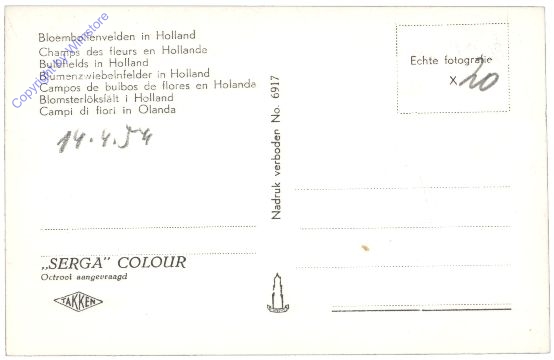 Bloembollenvelden in Holland
Champs des fleurs en Hollande
Bulbfields in Holland
Blumenzwiebelnfelder in Holland
Campos de bulbos de flores en Holanda
Blomsterlöksfält i Holland
Campi di fiori in Olanda
14.4.54
Copyright by Winestore
Echte fotografie
X
20
Nadruk verboden No. 6917
„SERGA” COLOUR
Octrooi aangevraagd
TAKKEN